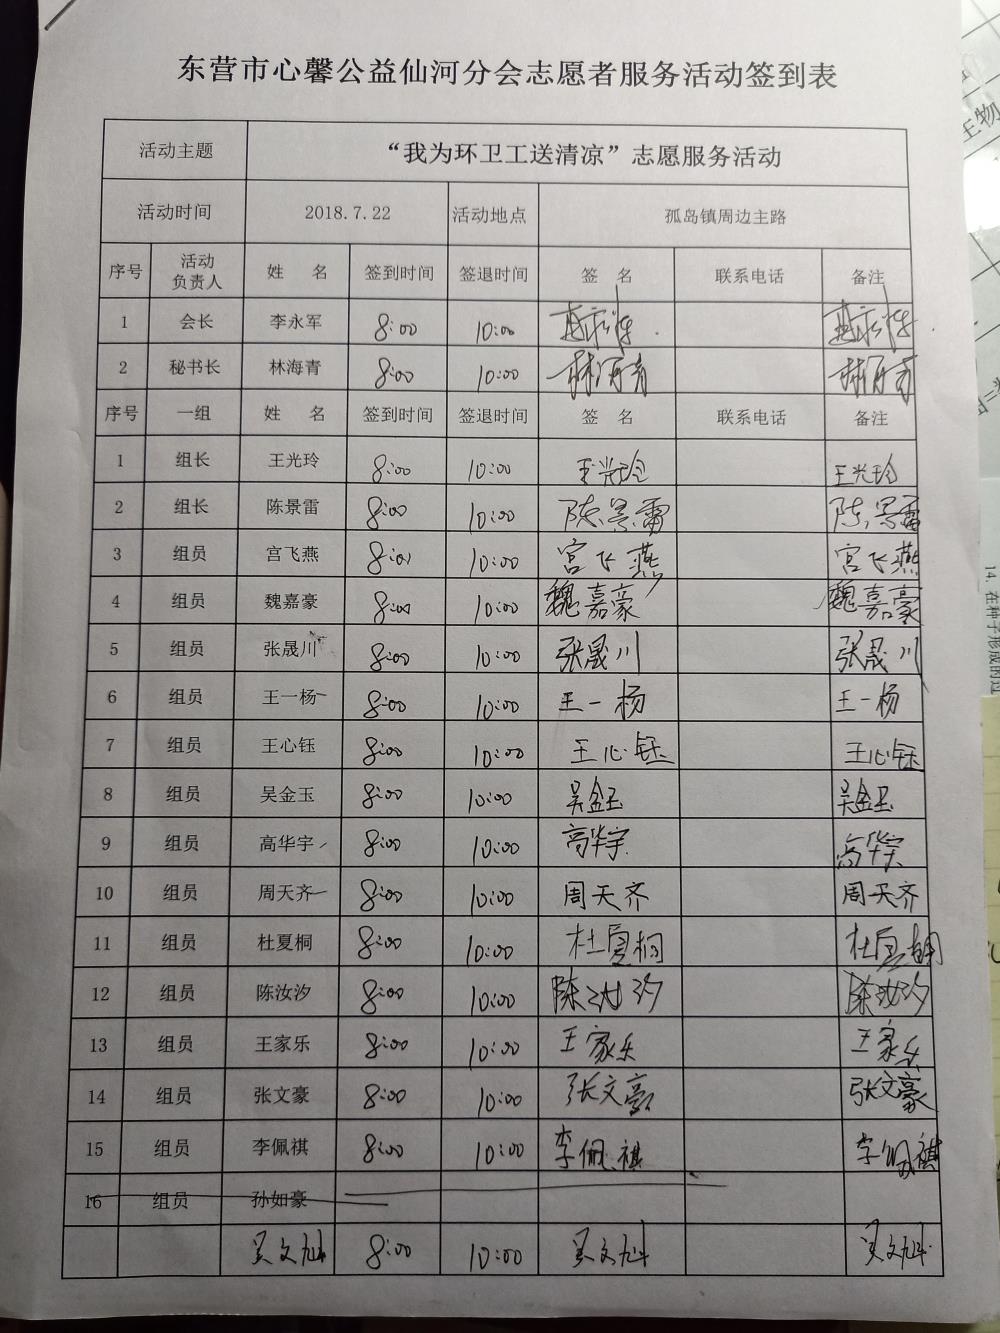 东营市心馨公益仙河分会志愿者服务活动签到表
活动主题 “我为环卫工送清凉”志愿服务活动
活动时间 2018.7.22 活动地点 孤岛镇周边主路
序号 活动负责人 姓 名 签到时间 签退时间 签 名 联系电话 备注
1 会长 李永军 8:00 10:00
2 秘书长 林海青 8:00 10:00 林海青 林海青
序号 一组 姓 名 签到时间 签退时间 签 名 联系电话 备注
1 组长 王光玲 8:00 10:00 王光玲 王光玲
2 组长 陈景雷 8:00 10:00 陈景雷 陈景雷
3 组员 宫飞燕 8:00 10:00 宫飞燕 宫飞燕
4 组员 魏嘉豪 8:00 10:00 魏嘉豪 魏嘉豪
5 组员 张晟川 8:00 10:00 张晟川 张晟川
6 组员 王一杨 8:00 10:00 王一杨 王一杨
7 组员 王心钰 8:00 10:00 王心钰 王心钰
8 组员 吴金玉 8:00 10:00 吴金玉 吴金玉
9 组员 高华宇 8:00 10:00 高华宇 高华宇
10 组员 周天齐 8:00 10:00 周天齐 周天齐
11 组员 杜夏桐 8:00 10:00 杜夏桐 杜夏桐
12 组员 陈汝汐 8:00 10:00 陈汝汐 陈汝汐
13 组员 王家乐 8:00 10:00 王家乐 王家乐
14 组员 张文豪 8:00 10:00 张文豪 张文豪
15 组员 李佩祺 8:00 10:00 李佩祺 李佩祺
16 组员 孙如豪
8:00 10:00
生物
14. 在种子形成的过